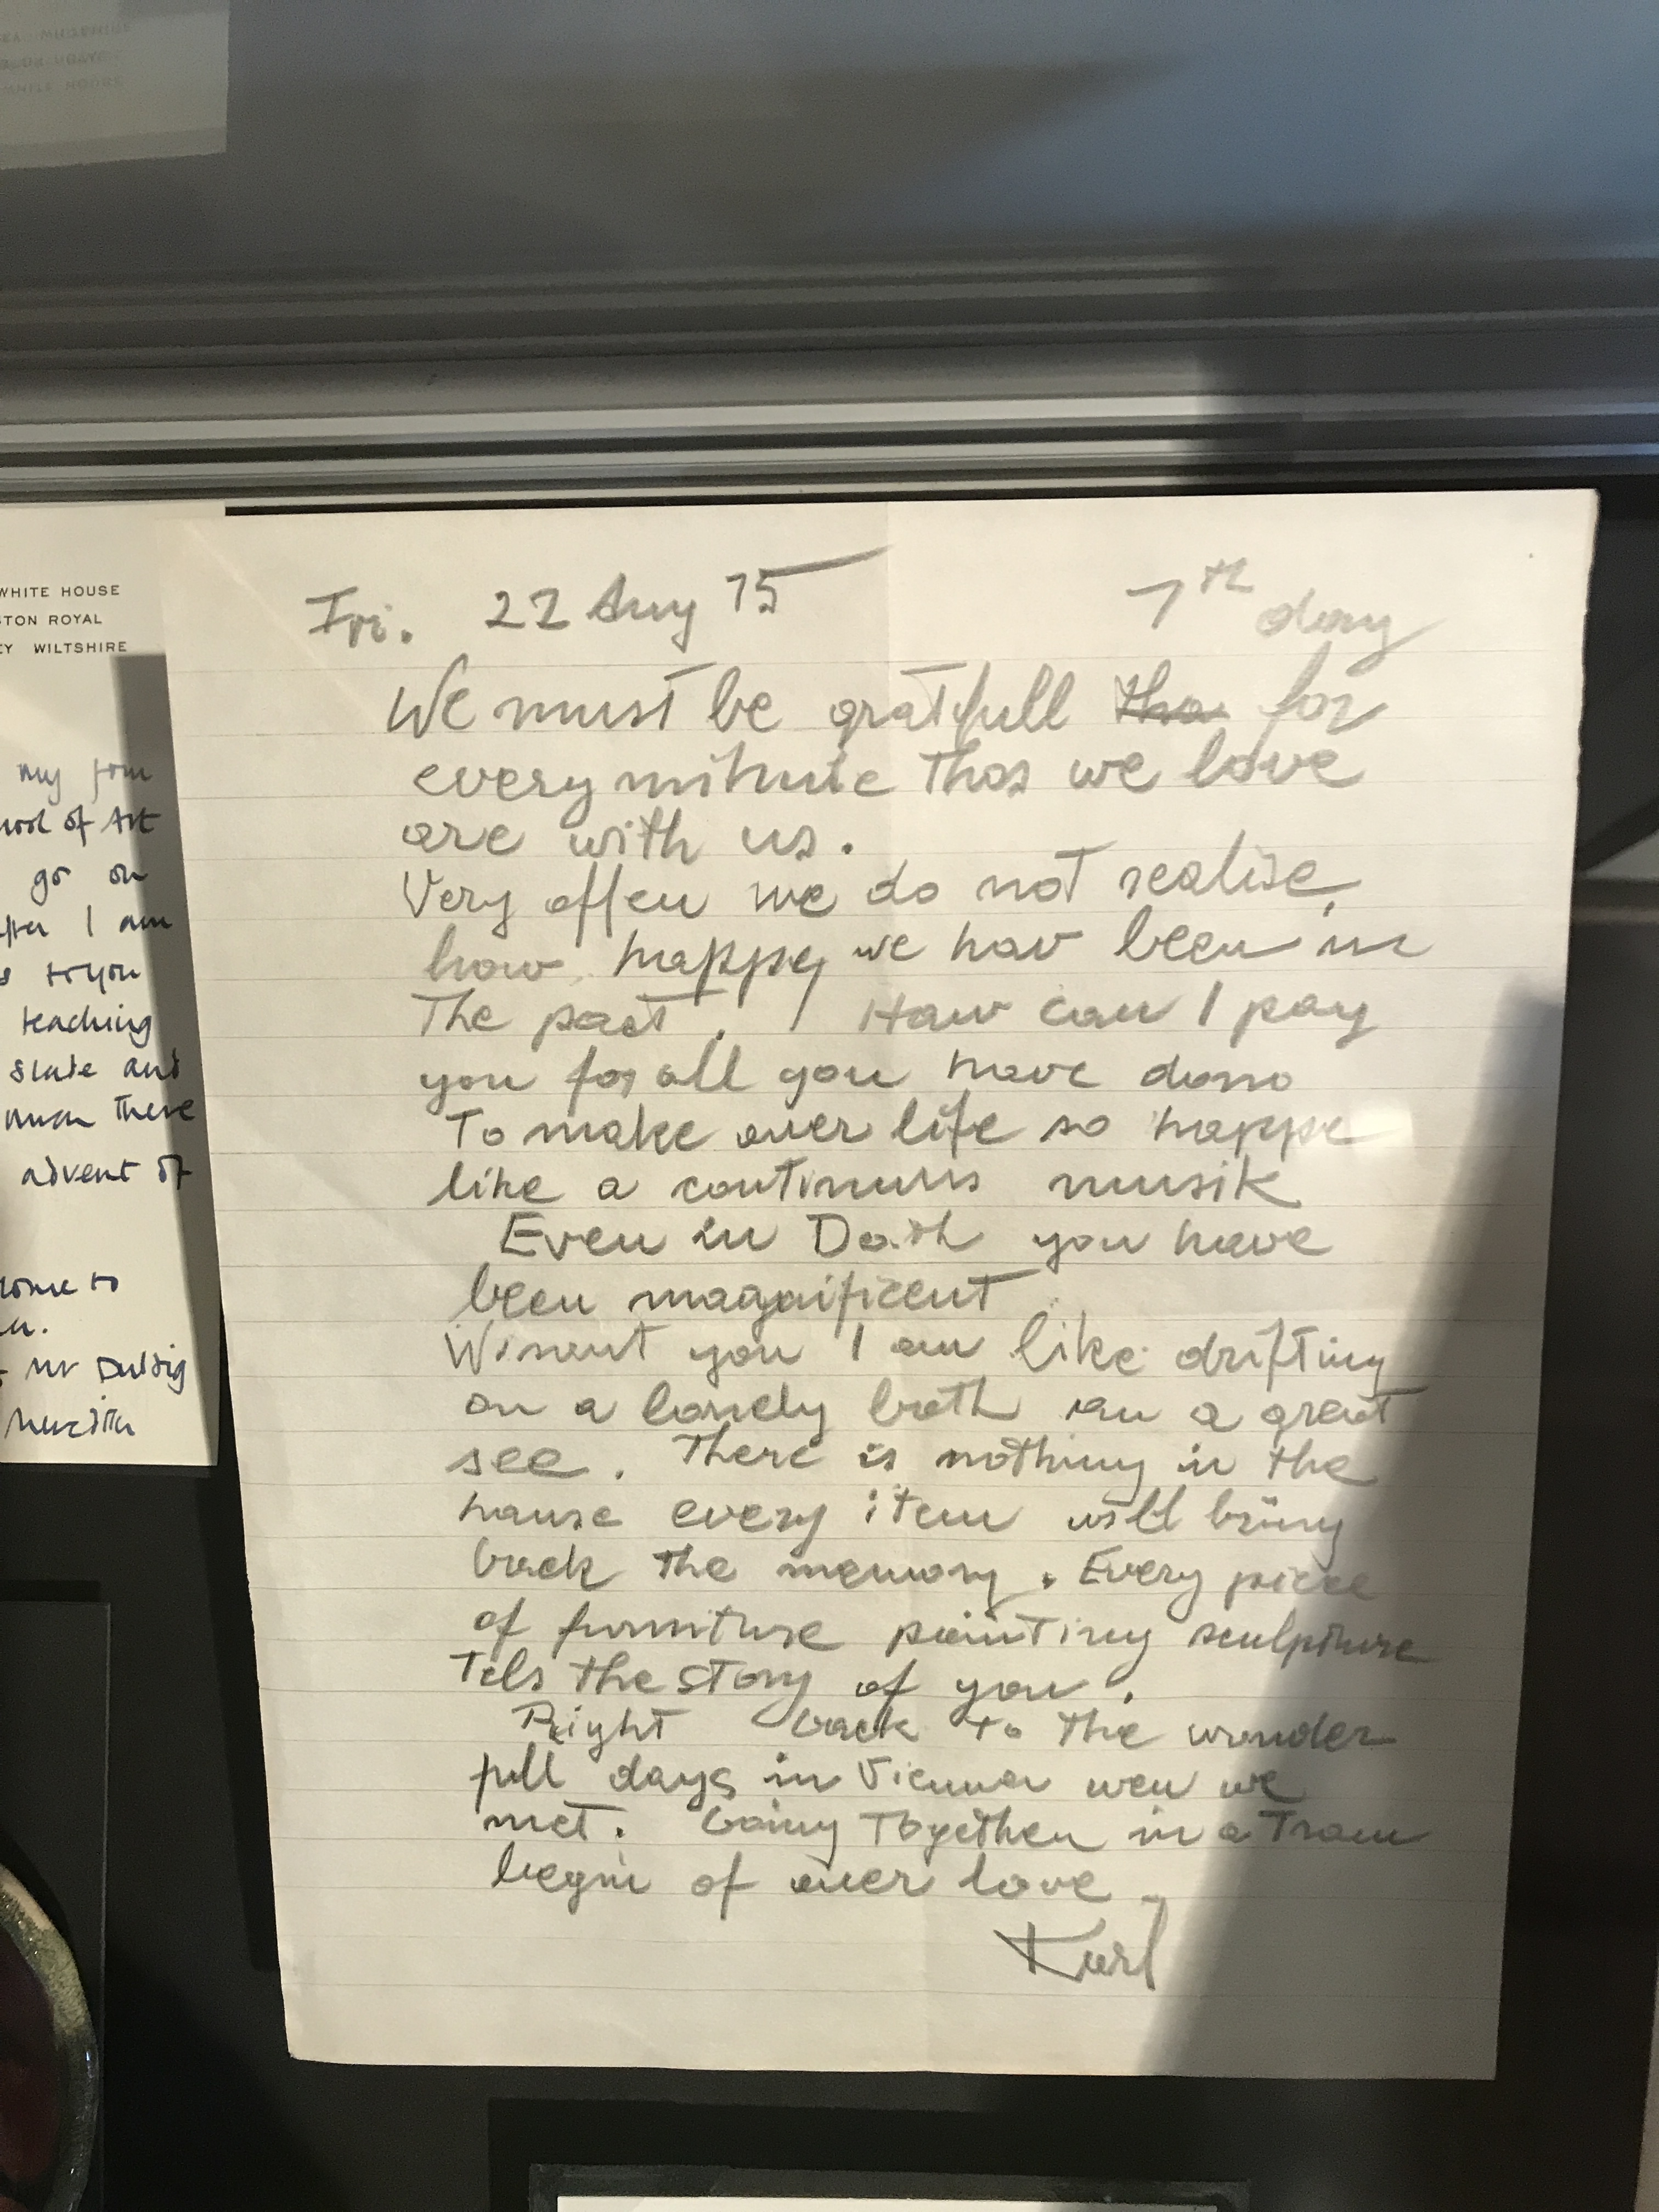 WHITE HOUSE
TON ROYAL
EY WILTSHIRE
my
ool of Art
go on
I am
to you
teaching
Slade and
there
advent of
come to
Mr Duldig
Fri. 22 Aug 75 7th day
We must be gratfull tha for
every minute thos we love
are with us.
Very offen we do not realise,
how happy we hav been in
The past. / How can I pay
you for all you have dono
To make ouer life so happe
like a continuus musik
Even in Death you have
been magnificent
Winout you I am like drifting
on a lonely both on a great
see. There is nothing in the
hause every item will bring
back the memory. Every piece
of furniture painting sculpture
Tels the story of you.
Right back to the wonder
full days in Vienna wen we
met. Going Together in a Tram
begin of ouer love.
Karl